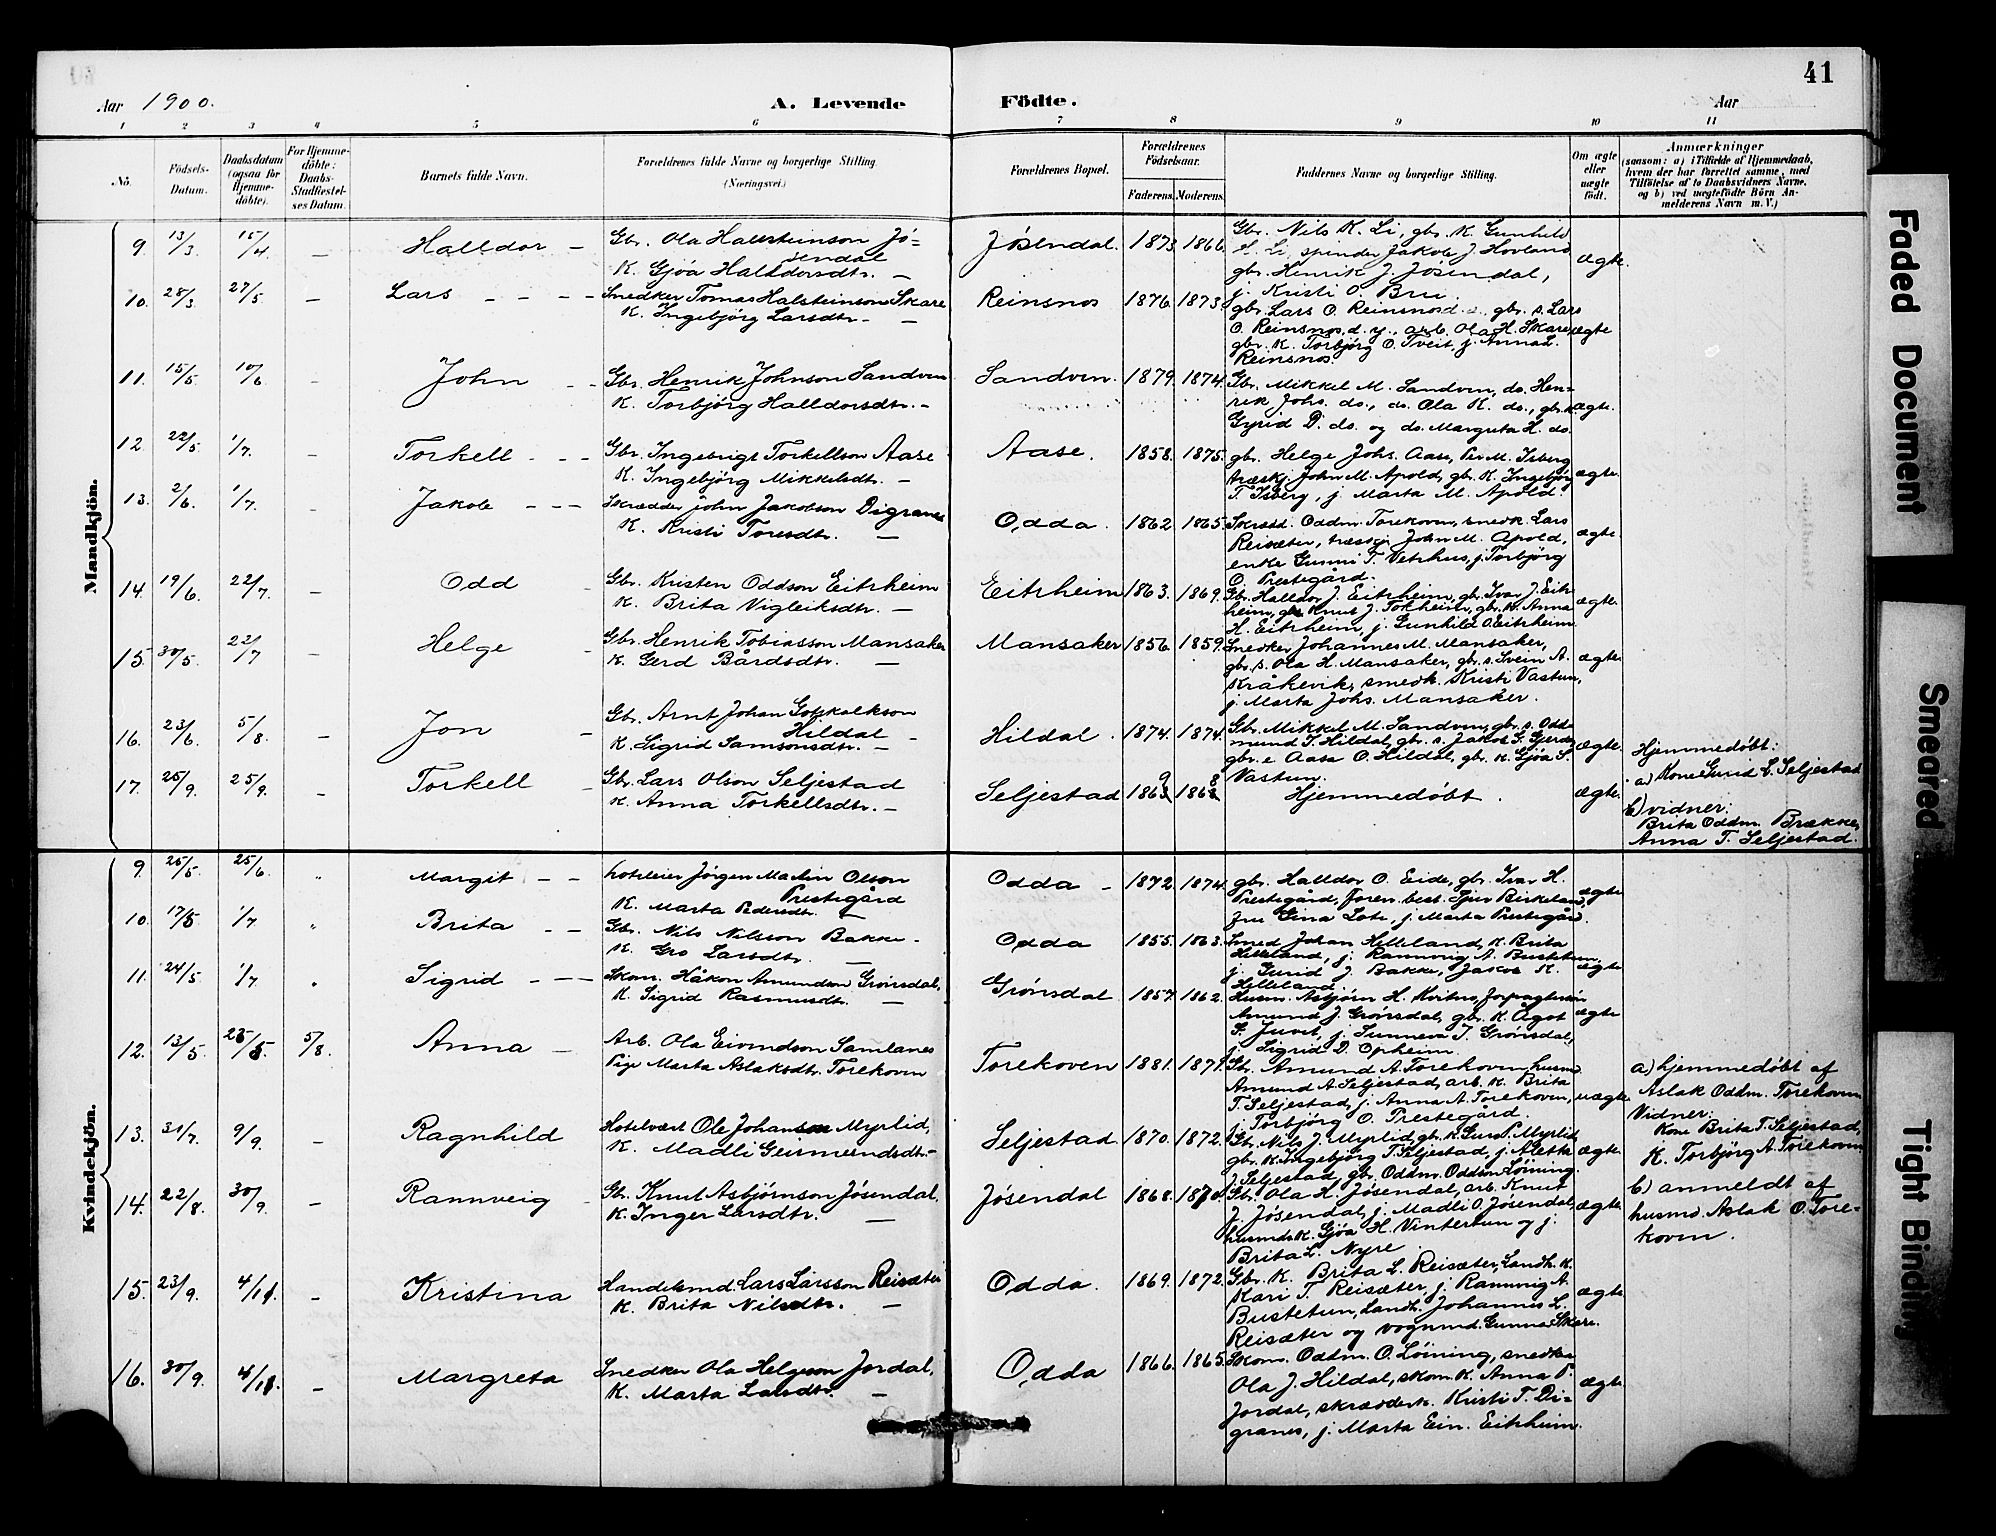 41
Aar 1900.
A. Levende Födte.
Aar
1 2 3 4 5 6 7 8 9 10 11
No.
Födsels-Datum.
Daabsdatum (ogsaa for Hjemme-döbte).
For Hjemme-döbte: Daabs-Stadfæstel-ses Datum.
Barnets fulde Navn.
Forældrenes fulde Navne og borgerlige Stilling.
(Næringsvei.)
Forældrenes Bopæl.
Forældrenes Födselsaar.
Faderens. Moderens.
Faddernes Navne og borgerlige Stilling.
Om ægte eller uægte födt.
Anmærkninger
(saasom: a) i Tilfælde af Hjemmedaab,
hvem der har forrettet samme, med
Tilföielse af to Daabsvidners Navne,
og b) ved uægtefödte Börn An-
melderens Navn m. V.)
Mandkjön.
9. 13/3 15/4 — Halldor — Gbr. Ola Hallsteinson Jö-
sendal
K. Gjöa Halldorsdtr. —
Jösendal. 1873 1866.
Gbr. Nils K. Li, gbr. K. Gunhild
S. Li, spinder Jakob J. Hovland
gbr. Henrik J. Jösendal,
j. Kristi O. Bru.
ægte.
10. 28/3 27/5 — Lars — Snedker Tomas Halsteinson Skare
K. Ingebjörg Larsdtr. —
Reinsnos 1876. 1873.
gbr. Lars O. Reinsnos d. , gbr. s. Lars
O. Reinsnos, d. y., arb. Ola H. Skare,
gbr. K. Torbjörg O. Tveit, j. Anna L.
Reinsnos.
ægte
11. 15/5 10/6 - John — Gbr. Henrik Johnson Sandven
K. Torbjörg Halldorsdtr. —
Sandven. 1879. 1874.
Gbr. Mikkel M. Sandven, do. Hen-
rik Johs. do., do. Ola K. do., gbr. K.
Gyrid D. do. og do. Margreta H. do.
ægte.
12 22/5 1/7. — Torkell — Gbr. Ingebrigt Torkellson Aase
K. Ingebjörg Mikkelsdtr. —
Aase. 1858. 1875.
gbr. Helge Johs. Aase, Per M. Isberg
træskj. John M. Apold, gbr. K. Ingebjörg
T. Isberg, j. Marta M. Apold.
ægte.
13. 2/6. 1/7 - Jakob — Skrædder John Jakobson Digranes
K. Kristi Toresdtr. —
Odda. 1862 1865.
Skrædd. Oddm. Torekoven, snedk. Lars
Reisæter, træskj. John M. Apold,
enke Gunni T. Vetrhus, j. Torbjörg
O. Prestegård.
ægte.
14. 19/6. 22/7. — Odd Gbr. Kristen Oddson Eitrheim
K. Brita Vigleiksdtr. —
Eitrheim 1863. 1869.
Gbr. Halldor J. Eitrheim, gbr. Ivar J. Eitr-
heim, gbr. Knut J. Tokheim, gbr. K. Anna
H. Eitrheim, j. Gunhild O. Eitrheim.
ægte.
15. 30/5. 22/7 — Helge Gbr. Henrik Tobiasson Mansaker
K. Gerd Bårdsdtr. —
Mansaker 1856. 1859.
Snedker Johannes M. Mansaker,
gbr. s. Ola H. Mansaker, gbr. s. Svein A.
Kråkevik, smedk. Kristi Vastun,
j. Marta Johs. Mansaker.
ægte.
16. 23/6 5/8. — Jon Gbr. Arnt Johan Gotskalkson
Hildal
K. Sigrid Samsonsdtr. —
Hildal. 1874. 1874.
Gbr. Mikkel M. Sandven, gbr. s. Odd-
mund T. Hildal, gbr. s. Jakob G. Gjerde,
gbr. e Aasa O. Hildal, gbr. K. Gjöa S.
Vastun.
ægte.
17. 25/9. 25/9. — Torkell Gbr. Lars Olson Seljestad
K. Anna Torkellsdtr. —
Seljestad 1869 1868
Hjemmedöbt.
ægte.
Hjemmedöbt:
a) Kone Gurid L. Seljestad
b) vidner:
Brita Oddm. Brekke,
Anna T. Seljestad.
Kvindekjön.
9. 25/5. 25/6. " Margit — hoteleier Jörgen Martin Olson
Prestegård
K. Marta Pedersdtr. —
Odda 1872 1874.
gbr. Halldor O. Eide, gbr. Ivar H.
Prestegård, Foren. best. Sjur Birkeland,
fru Gina Lote, j. Marta Prestegård.
ægte
10. 17/5 1/7 " Brita — Gbr. Nils Nilsson Bakke.
K. Gro Larsdtr. —
Odda 1855. 1863.
Smed Johan Helleland, K. Brita
Helleland, j. Rannvig A. Bustetun,
j. Gurid J. Bakke, Jakob K.
Helleland.
ægte
11. 24/5 1/7 " Sigrid — Skom. Håkon Amundson Grönsdal,
K. Sigrid Rasmusdtr. —
Grönsdal 1857. 1862.
Husm. Asbjörn H. Kvitno, forpagterson
Amund J. Grönsdal, gbr. K. Ågot
S. Juvet, j. Sunneva T. Grönsdal,
j. Sigrid D. Opheim.
ægte
12. 13/5. 25/5. 5/8. Anna — Arb. Ola Eivindson Samlanes
Pige Marta Aslaksdtr. Torekoven
Torekoven 1881. 1879.
Gbr. Amund A. Torekoven, husmd.
Amund A. Seljestad, arb. K. Brita
T. Seljestad, j. Anna A. Torekoven,
j. Torbjörg O. Prestegård.
uægte
a) hjemmedöbt af
Aslak Oddm. Torekoven
Vidner:
Kone Brita T. Seljestad,
K. Torbjörg A. Torekoven
b) anmeldt af
husmd. Aslak O. Tore-
koven.
13. 31/7. 9/9. — Ragnhild Hotelvært Ole Johanson Myrlid,
K. Madli Geirmundsdtr. —
Seljestad 1870. 1872.
Gbr. Nils J. Myrlid, gbr. K. Guro P. Myrlid,
gbr. K. Ingebjörg T. Seljestad, j. Alette
J. Seljestad, gbr. Oddm. Oddson Löining.
ægte.
14. 22/8. 30/9. — Rannveig Gbr. Knut Asbjörnson Jösendal,
K. Inger Larsdtr. —
Jösendal 1868.
Gbr. Ola H. Jösendal, arb. Knut
J. Jösendal, j. Madli O. Jösendal,
husmds K. Gjöa H. Vintertun og j.
Brita L. Nyre
ægte.
15. 23/9. 4/11. — Kristina Handelsmd. Lars Larsson Reisæter
K. Brita Nilsdtr. —
Odda. 1869. 1872.
Gbr. K. Brita L. Reisæter, Landh. K.
Kari T. Reisæter, j. Rannvig A.
Bustetun, Landh. Johannes L.
Reisæter og vognmd. Gunnar Skare.
ægte
16. 30/9. 4/11. — Margreta Snedker Ola Helgeson Jordal,
K. Marta Larsdtr. —
Odda 1866. 1865.
Skom. Oddm. O. Löining, snedker
Ola J. Hildal, skom. K. Anna P.
Jordal, skrædderk. Kristi T. Di-
granes, j. Marta Ein. Eitrheim.
ægte
Faded Document
Smeared
Tight Binding